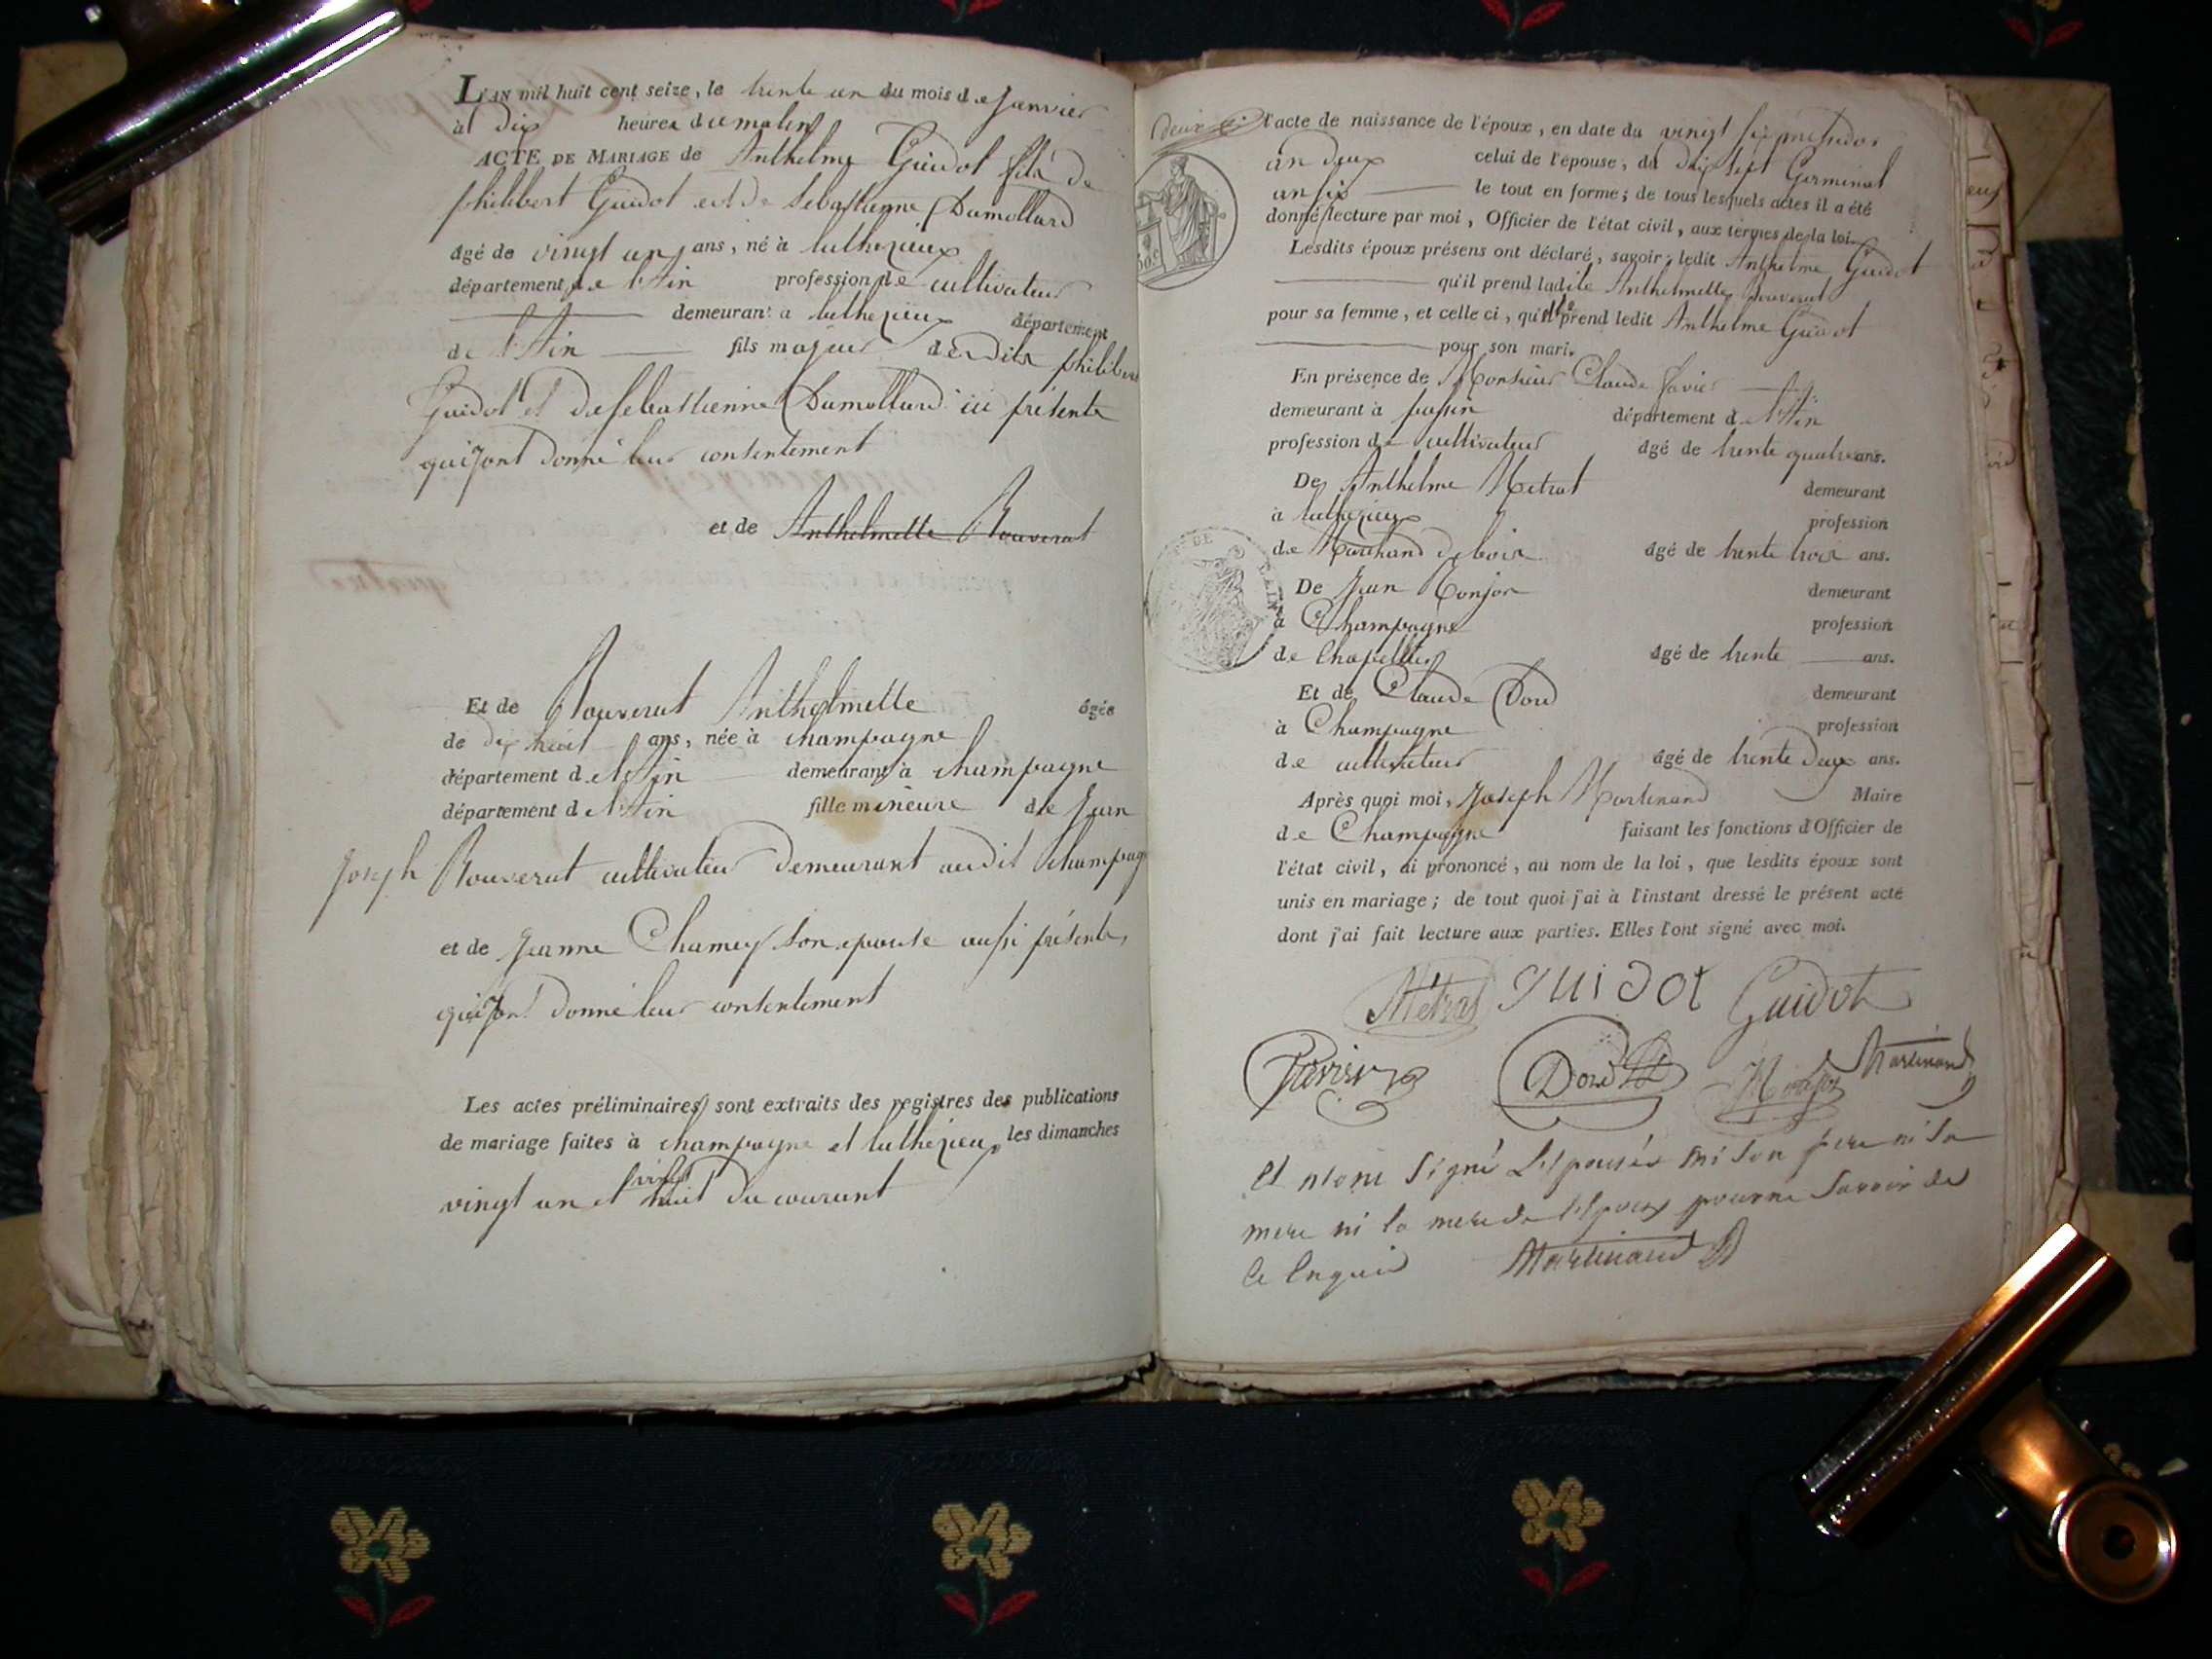 L'AN mil huit cent seize, le trente un du mois de Janvier
à dix heures du matin
ACTE DE MARIAGE de Anthelme Guidot fils de
philibert Guidot et de Sebastienne Dumollard
âgé de vingt un ans, né à luthezieux
département de l'Ain profession de cultivateur
demeurant à luthezieux département
de l'Ain fils majeur desdits philibert
Guidot et de Sebastienne Dumollard ici présents
qui ont donné leur consentement
et de Anthelmette Rouverat
Et de Rouverat Anthelmette âgée
de dix huit ans, née à champagne
département de l'Ain demeurant à champagne
département de l'Ain fille mineure de Jean
Joseph Rouverat cultivateur demeurant audit champag
et de Jeanne Chamey son epouse aussi présents,
qui ont donné leur consentement
Les actes préliminaires sont extraits des registres des publications
de mariage faites à champagne et luthezieu les dimanches
vingt un et vingt huit du courant
l'acte de naissance de l'époux, en date du vingt six messidor
an deux celui de l'épouse, du dix sept Germinal
an six le tout en forme; de tous lesquels actes il a été
donné lecture par moi, Officier de l'état civil, aux termes de la loi.
Lesdits époux présens ont déclaré, savoir: ledit Anthelme Guidot
qu'il prend ladite Anthelmette Rouverat
pour sa femme, et celle ci, qu'elle prend ledit Anthelme Guidot
pour son mari.
En présence de Monsieur Claude favier
demeurant à passin département de l'Ain
profession de cultivateur âgé de trente quatre ans.
De Anthelme Metrat demeurant
à luthezieux profession
de Marchand de bois âgé de trente trois ans.
De Jean Monjon demeurant
à Champagne profession
de Chapellier âgé de trente ans.
Et de Claude Dord demeurant
à Champagne profession
de cultivateur âgé de trente deux ans.
Après quoi moi, Joseph Martinand Maire
de Champagne faisant les fonctions d'Officier de
l'état civil, ai prononcé, au nom de la loi, que lesdits époux sont
unis en mariage; de tout quoi j'ai à l'instant dressé le présent acte
dont j'ai fait lecture aux parties. Elles l'ont signé avec moi.
Métras guidot Guidot
Favier Dord Monjon Martinand
Et n'ont signé L'epousée ni son père ni sa
mere ni la mere de l'epoux pour ne savoir de
ce Enquis Martinand